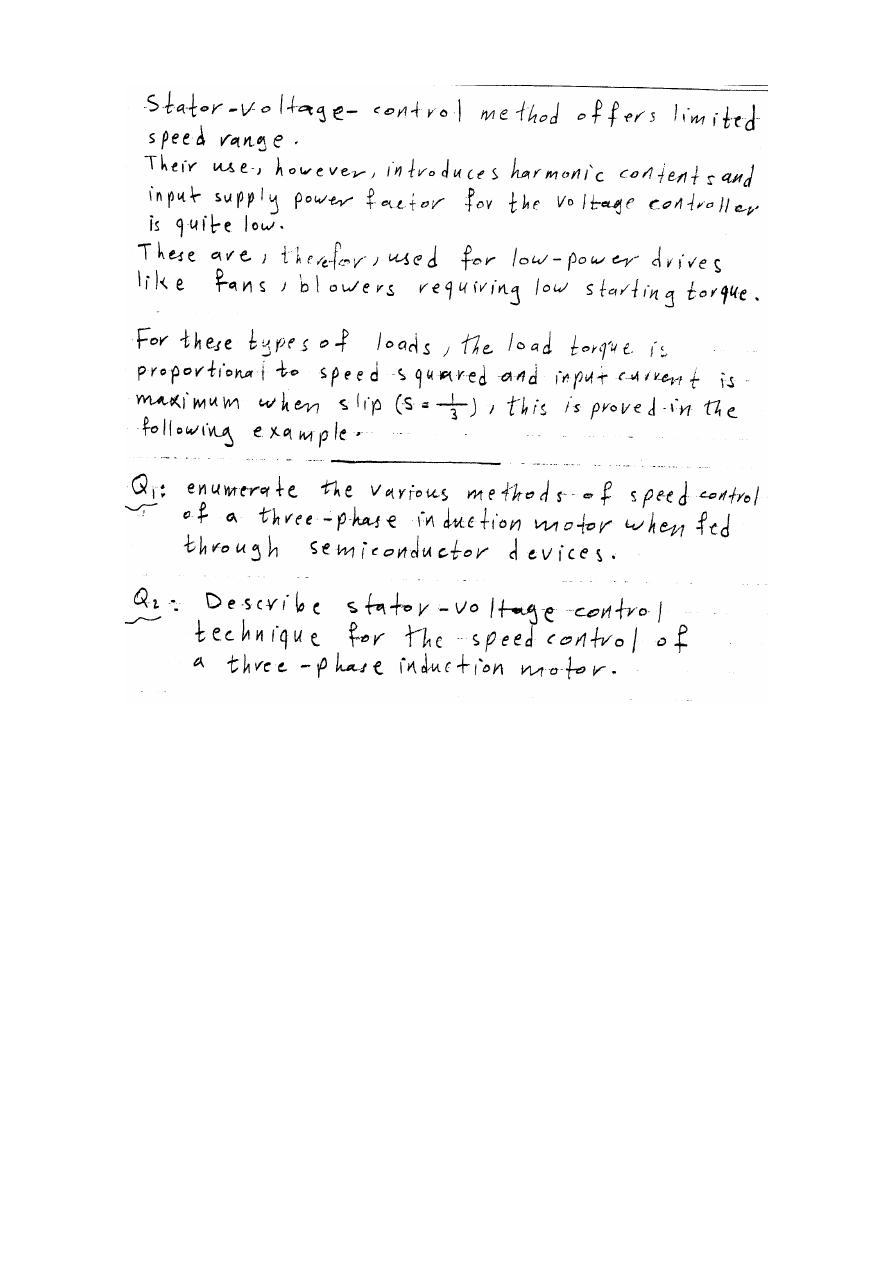 Stator-voltage-control method offers limited
speed range.
Their use, however, introduces harmonic contents and
input supply power factor for the voltage controller
is quite low.
These are, therefor, used for low-power drives
like fans, blowers requiring low starting torque.
For these types of loads, the load torque is
proportional to speed squared and input current is
maximum when slip (S = 1/3), this is proved in the
following example.
Q1: enumerate the various methods of speed control
of a three-phase induction motor when fed
through semiconductor devices.
Q2: Describe stator-voltage control
technique for the speed control of
a three-phase induction motor.